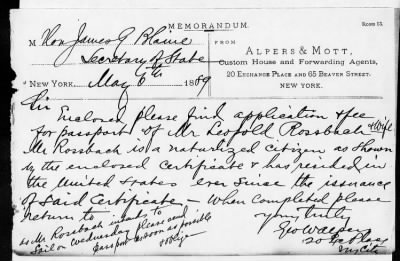 MEMORANDUM.
ROOM 13.
M Hon James G Blaine
Secretary of State
NEW YORK, May 6th 1889
FROM
ALPERS & MOTT,
Custom House and Forwarding Agents,
20 EXCHANGE PLACE AND 65 BEAVER STREET.
NEW YORK.
Sir Enclosed please find application & fee
for passport of Mr Leopold Rossbach & Wife
Mr Rossbach is a naturlized citizen as shown
by the enclosed certificate & has resided in
the United States ever since the issuance
of Said Certificate – When completed please
return to
yours truly
Geo
20 Ex Place
N Y City
as Mr Rossbach intends to
Sail on Wednesday please send
passport as soon as possible
& oblige